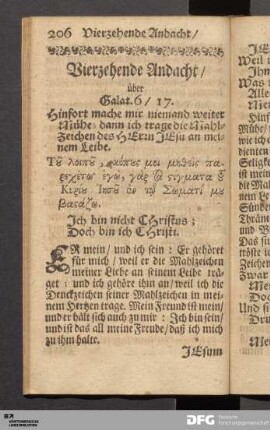 206 Vierzehende Andacht/
Vierzehende Andacht/
über
Galat. 6/ 17.
Hinfort mache mir niemand weiter
Mühe/ dann ich trage die Mahl-
Zeichen des HErrn JEsu an mei-
nem Leibe.
Τῦ λοιπῦ, κόπυς μοι μηδεὶς πα-
ρεχέτω· ἐγὼ γὰρ τὰ στίγματα
Κυρίυ Ἰησῦ ἐν τῷ Σώματί μυ
βαςάζω.
Ich bin nicht CHristus;
Doch bin ich CHristi.
ER mein/ und ich sein: Er gehöret
für mich/ weil er die Mahlzeichen
meiner Liebe an seinem Leibe trä-
get: und ich gehöre ihn an/ weil ich die
Denckzeichen seiner Mahlzeichen in mei-
nem Hertzen trage. Mein Freund ist mein/
und er hält sich auch zu mir: Ich bin sein/
und ist das all meine Freude/ daß ich mich
zu ihm halte.
JEsum
DFG
Deutsche
Forschungsgemeinschaft